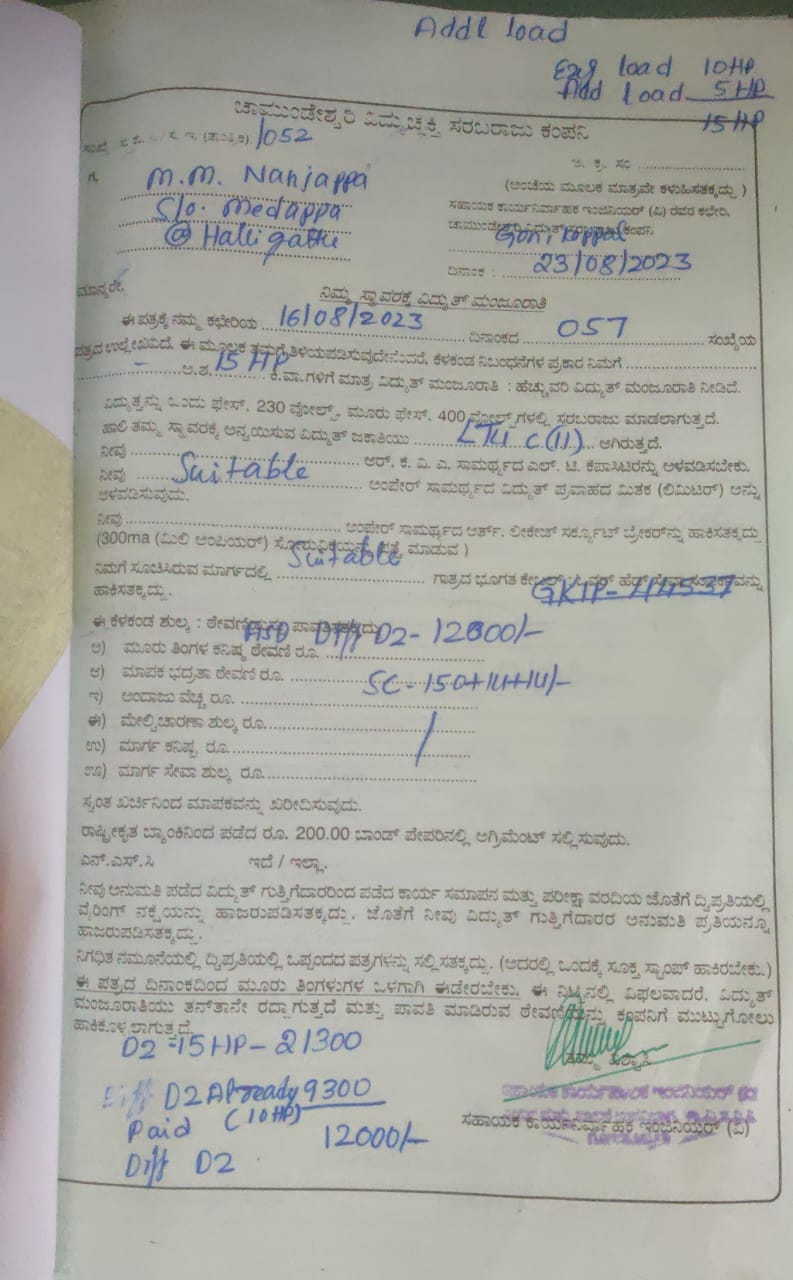 Addl load
Exg load 10HP
Add load 5HP
15HP
ಚಾಮುಂಡೇಶ್ವರಿ ವಿದ್ಯುಚ್ಛಕ್ತಿ ಸರಬರಾಜು ಕಂಪನಿ
1052
ಗೆ, M.M. Nanjappa
(ಅಂಚೆಯ ಮೂಲಕ ಮಾತ್ರವೇ ಕಳುಹಿಸತಕ್ಕದ್ದು )
S/o. Medappa
ಸಹಾಯಕ ಕಾರ್ಯನಿರ್ವಾಹಕ ಇಂಜಿನಿಯರ್ (ವಿ) ರವರ ಕಛೇರಿ.
@ Halligattu
ಚಾಮುಂಡೇಶ್ವರಿ ವಿದ್ಯುತ್ ಸರಬರಾಜು ಕಂಪನಿ
Gonikoppal
ದಿನಾಂಕ : 23/08/2023
ಮಾನ್ಯರೇ,
ನಿಮ್ಮ ಸ್ಥಾವರಕ್ಕೆ ವಿದ್ಯುತ್ ಮಂಜೂರಾತಿ
ಈ ಪತ್ರಕ್ಕೆ ನಮ್ಮ ಕಛೇರಿಯ 16/08/2023 ದಿನಾಂಕದ 057 ಸಂಖ್ಯೆಯ
ಪತ್ರದ ಉಲ್ಲೇಖವಿದೆ. ಈ ಮೂಲಕ ತಮಗೆ ತಿಳಿಯಪಡಿಸುವುದೇನೆಂದರೆ, ಕೆಳಕಂಡ ನಿಬಂಧನೆಗಳ ಪ್ರಕಾರ ನಿಮಗೆ
– ಅ.ಶ. 15 HP ಕಿ.ವಾ.ಗಳಿಗೆ ಮಾತ್ರ ವಿದ್ಯುತ್ ಮಂಜೂರಾತಿ : ಹೆಚ್ಚುವರಿ ವಿದ್ಯುತ್ ಮಂಜೂರಾತಿ ನೀಡಿದೆ.
ವಿದ್ಯುತ್ತನ್ನು ಒಂದು ಫೇಸ್, 230 ವೋಲ್ಟ್, ಮೂರು ಫೇಸ್, 400 ವೋಲ್ಟ್‌ಗಳಲ್ಲಿ ಸರಬರಾಜು ಮಾಡಲಾಗುತ್ತದೆ.
ಹಾಲಿ ತಮ್ಮ ಸ್ಥಾವರಕ್ಕೆ ಅನ್ವಯಿಸುವ ವಿದ್ಯುತ್ ಜಕಾತಿಯು LT4 C(II) ಆಗಿರುತ್ತದೆ.
ನೀವು ಆರ್. ಕೆ. ವಿ. ಎ. ಸಾಮರ್ಥ್ಯದ ಎಲ್. ಟಿ. ಕೆಪಾಸಿಟರನ್ನು ಅಳವಡಿಸಬೇಕು.
ನೀವು Suitable ಅಂಪೇರ್ ಸಾಮರ್ಥ್ಯದ ವಿದ್ಯುತ್ ಪ್ರವಾಹದ ಮಿತಕ (ಲಿಮಿಟರ್) ಅನ್ನು
ಅಳವಡಿಸುವುದು.
ನೀವು ಅಂಪೇರ್ ಸಾಮರ್ಥ್ಯದ ಅರ್ತ್. ಲೀಕೇಜ್ ಸರ್ಕ್ಯೂಟ್ ಬ್ರೇಕರ್‌ನ್ನು ಹಾಕಿಸತಕ್ಕದ್ದು
(300ma (ಮಿಲಿ ಅಂಪಿಯರ್) ಮಾಡುವ )
ನಿಮಗೆ ಸೂಚಿಸಿರುವ ಮಾರ್ಗದಲ್ಲಿ Suitable ಗಾತ್ರದ ಭೂಗತ ಕೇಬಲ್
ಹಾಕಿಸತಕ್ಕದ್ದು.
ಈ ಕೆಳಕಂಡ ಶುಲ್ಕ : ಠೇವಣಿಯನ್ನು ಪಾವತಿಸತಕ್ಕದ್ದು
ASD Diff D2- 12000/-
ಅ) ಮೂರು ತಿಂಗಳ ಕನಿಷ್ಠ ಠೇವಣಿ ರೂ.
ಆ) ಮಾಪಕ ಭದ್ರತಾ ಠೇವಣಿ ರೂ. SC-150+14+14/-
ಇ) ಅಂದಾಜು ವೆಚ್ಚ ರೂ.
ಈ) ಮೇಲ್ವಿಚಾರಣಾ ಶುಲ್ಕ ರೂ.
ಉ) ಮಾರ್ಗ ಕನಿಷ್ಠ ರೂ.
ಊ) ಮಾರ್ಗ ಸೇವಾ ಶುಲ್ಕ ರೂ.
ಸ್ವಂತ ಖರ್ಚಿನಿಂದ ಮಾಪಕವನ್ನು ಖರೀದಿಸುವುದು.
ರಾಷ್ಟ್ರೀಕೃತ ಬ್ಯಾಂಕಿನಿಂದ ಪಡೆದ ರೂ. 200.00 ಬಾಂಡ್ ಪೇಪರಿನಲ್ಲಿ ಅಗ್ರಿಮೆಂಟ್ ಸಲ್ಲಿಸುವುದು.
ಎನ್.ಎಸ್.ಸಿ ಇದೆ / ಇಲ್ಲಾ.
ನೀವು ಅನುಮತಿ ಪಡೆದ ವಿದ್ಯುತ್ ಗುತ್ತಿಗೆದಾರರಿಂದ ಪಡೆದ ಕಾರ್ಯ ಸಮಾಪನ ಮತ್ತು ಪರೀಕ್ಷಾ ವರದಿಯ ಜೊತೆಗೆ ದ್ವಿಪ್ರತಿಯಲ್ಲಿ
ವೈರಿಂಗ್ ನಕ್ಷೆಯನ್ನು ಹಾಜರುಪಡಿಸತಕ್ಕದ್ದು. ಜೊತೆಗೆ ನೀವು ವಿದ್ಯುತ್ ಗುತ್ತಿಗೆದಾರರ ಅನುಮತಿ ಪ್ರತಿಯನ್ನೂ
ಹಾಜರುಪಡಿಸತಕ್ಕದ್ದು.
ನಿಗಧಿತ ನಮೂನೆಯಲ್ಲಿ ದ್ವಿಪ್ರತಿಯಲ್ಲಿ ಒಪ್ಪಂದದ ಪತ್ರಗಳನ್ನು ಸಲ್ಲಿಸತಕ್ಕದ್ದು. (ಅದರಲ್ಲಿ ಒಂದಕ್ಕೆ ಸೂಕ್ತ ಸ್ಟಾಂಪ್ ಹಾಕಿರಬೇಕು.)
ಈ ಪತ್ರದ ದಿನಾಂಕದಿಂದ ಮೂರು ತಿಂಗಳುಗಳ ಒಳಗಾಗಿ ಈಡೇರಬೇಕು. ಈ ನಿಟ್ಟಿನಲ್ಲಿ ವಿಫಲವಾದರೆ, ವಿದ್ಯುತ್
ಮಂಜೂರಾತಿಯು ತನ್‌ತಾನೇ ರದ್ದಾಗುತ್ತದೆ ಮತ್ತು ಪಾವತಿ ಮಾಡಿರುವ ಠೇವಣಿಯನ್ನು ಕಂಪನಿಗೆ ಮುಟ್ಟುಗೋಲು
ಹಾಕಿಕೊಳ್ಳಲಾಗುತ್ತದೆ.
D2 -15HP- 21300
ತಮ್ಮ ವಿಶ್ವಾಸಿ
Diff D2 Already 9300
Paid (10HP)
ಸಹಾಯಕ ಕಾರ್ಯನಿರ್ವಾಹಕ ಇಂಜಿನಿಯರ್ (ವಿ)
12000/-
Diff D2